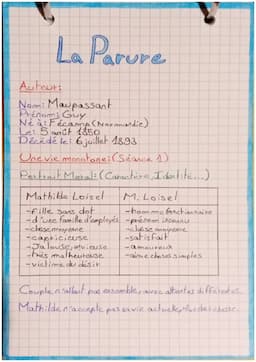 La Parure
Auteur:
Nom: Maupassant
Prénom: Guy
Né à: Fécamp (Normandie)
Le: 5 août 1850
Décédé le: 6 juillet 1893
Une vie monotone: (Séance 1)
Portrait Moral: (Caractère, Identité...)
Mathilde Loisel
-fille sans dot
-d'une famille d'employés
-classe moyenne
-capricieuse
-Jalouse, envieuse
-très malheureuse
-victime du désir
M. Loisel
-homme fonctionnaire
-prénom inconnu
-classe moyenne
-satisfait
-amoureux
-aime choses simples
Couple n'allait pas ensemble, avec attentes différentes.
Mathilde n'accepte pas sa vie actuelle,